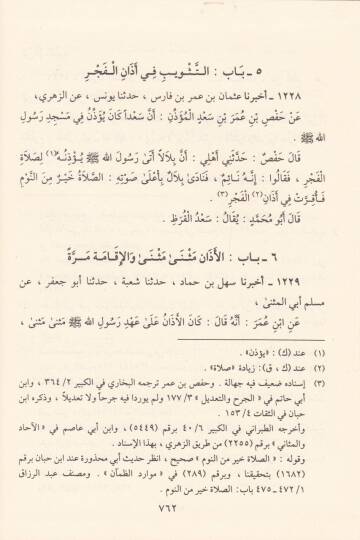 ٥ ـ بَاب : الـتَّـثْـوِيـبِ فِـي أَذَانِ الْـفَـجْـرِ
١٢٢٨ ـ أخبرنا عثمان بن عمر بن فارس ، حدثنا يونس ، عن الزهري،
عَنْ حَفْصِ بْنِ عُمَرَ بْنِ سَعْدٍ الْمُؤَذِّنِ : أَنَّ سَعْداً كَانَ يُؤَذِّنُ فِي مَسْجِدِ رَسُولِ
اللهِ ﷺ .
قَالَ حَفْصٌ : حَدَّثَنِي أَهْلِي : أَنَّ بِلَالاً أَتَىٰ رَسُولَ اللهِ ﷺ يُـؤْذِنُـهُ(١) لِصَلَاةِ
الْفَجْرِ ، فَقَالُوا : إِنَّـهُ نَـائِـمٌ ، فَنَادَىٰ بِلَالٌ بِأَعْلَىٰ صَوْتِهِ : الصَّلَاةُ خَيْـرٌ مِـنَ النَّوْمِ
فَـأُقِـرَّتْ فِي أَذَانِ(٢) الْفَجْرِ(٣) .
قَالَ أَبُو مُحَمَّدٍ : يُقَالُ : سَعْدُ الْقَرَظِ .
٦ ـ بـاب : الأَذَانِ مَثْنَـىٰ مَثْنَـىٰ وَالإِقَـامَـة مَـرَّةً
١٢٢٩ ـ أخبرنا سهل بن حماد ، حدثنا شعبة ، حدثنا أبو جعفر ، عن
مسلم أبي المثنىٰ ،
عَنِ ابْنِ عُمَرَ : أَنَّهُ قَالَ : كَانَ الأَذَانُ عَلَىٰ عَهْدِ رَسُولِ اللهِ ﷺ مَثْنىٰ مَثْنىٰ ،
(١) عند (ك) : «يؤذن» .
(٢) عند (ك ، ق): زيادة «صلاة» .
(٣) إسناده ضعيف فيه جهالة . وحفص بن عمر ترجمه البخاري في الكبير ٢/ ٣٦٤ ، وابن
أبي حاتم في « الجرح والتعديل » ٣/ ١٧٧ ولم يوردا فيه جرحاً ولا تعديلاً ، وذكره ابن
حبان في الثقات ٤/ ١٥٣ .
وأخرجه الطبراني في الكبير ٦/ ٤٠ برقم (٥٤٤٩) ، وابن أبي عاصم في «الآحاد
والمثاني» برقم (٢٢٥٥) من طريق الزهري ، بهذا الإسناد .
وقوله : « الصلاة خير من النوم » صحيح ، انظر حديث أبي محذورة عند ابن حبان برقم
(١٦٨٢) بتحقيقنا ، وبرقم (٢٨٩) في «موارد الظمآن» . ومصنف عبد الرزاق
١/ ٤٧٢ ـ ٤٧٥ باب: الصلاة خير من النوم .
٧٦٢